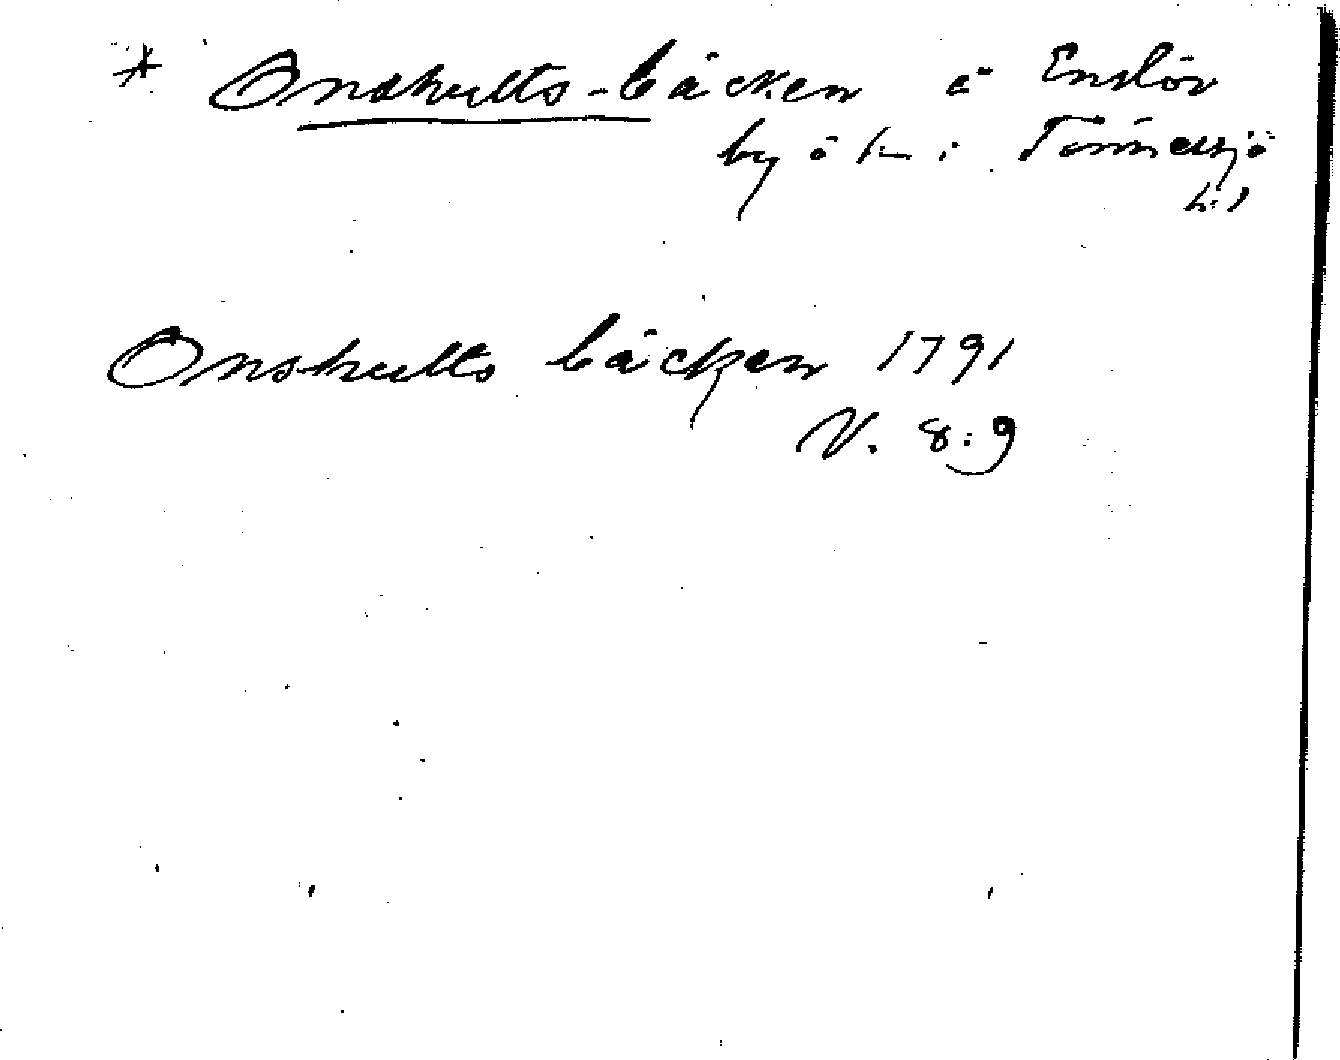 * Onskults-bäcken å Enslöv
by ö k i Tönnersjö
h:d
Onskults bäcken 1791
V. 8:9